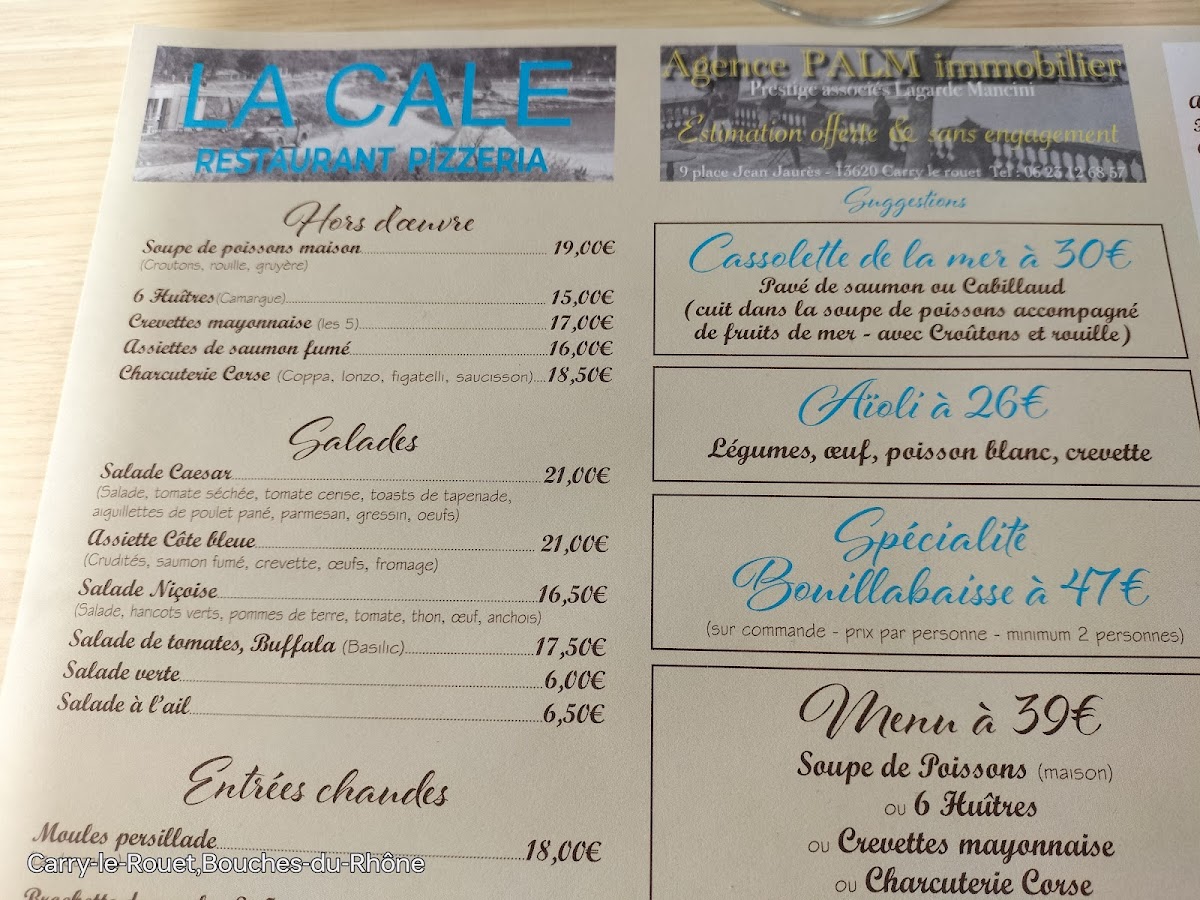 LA CALE
RESTAURANT PIZZERIA
Hors d'œuvre
Soupe de poissons maison 19,00€
(Croutons, rouille, gruyère)
6 Huîtres (Camargue) 15,00€
Crevettes mayonnaise (les 5) 17,00€
Assiettes de saumon fumé 16,00€
Charcuterie Corse (Coppa, lonzo, figatelli, saucisson) 18,50€
Salades
Salade Caesar 21,00€
(Salade, tomate séchée, tomate cerise, toasts de tapenade,
aiguillettes de poulet pané, parmesan, gressin, oeufs)
Assiette Côte bleue 21,00€
(Crudités, saumon fumé, crevette, œufs, fromage)
Salade Niçoise 16,50€
(Salade, haricots verts, pommes de terre, tomate, thon, œuf, anchois)
Salade de tomates, Buffala (Basilic) 17,50€
Salade verte 6,00€
Salade à l'ail 6,50€
Entrées chaudes
Moules persillade 18,00€
Agence PALM immobilier
Prestige associés Lagarde Mancini
Estimation offerte & sans engagement
9 place Jean Jaurès - 13620 Carry le rouet Tel : 06 23 12 68 57
Suggestions
Cassolette de la mer à 30€
Pavé de saumon ou Cabillaud
(cuit dans la soupe de poissons accompagné
de fruits de mer - avec Croûtons et rouille)
Aïoli à 26€
Légumes, œuf, poisson blanc, crevette
Spécialité
Bouillabaisse à 47€
(sur commande - prix par personne - minimum 2 personnes)
Menu à 39€
Soupe de Poissons (maison)
ou 6 Huîtres
ou Crevettes mayonnaise
ou Charcuterie Corse
Carry-le-Rouet,Bouches-du-Rhône